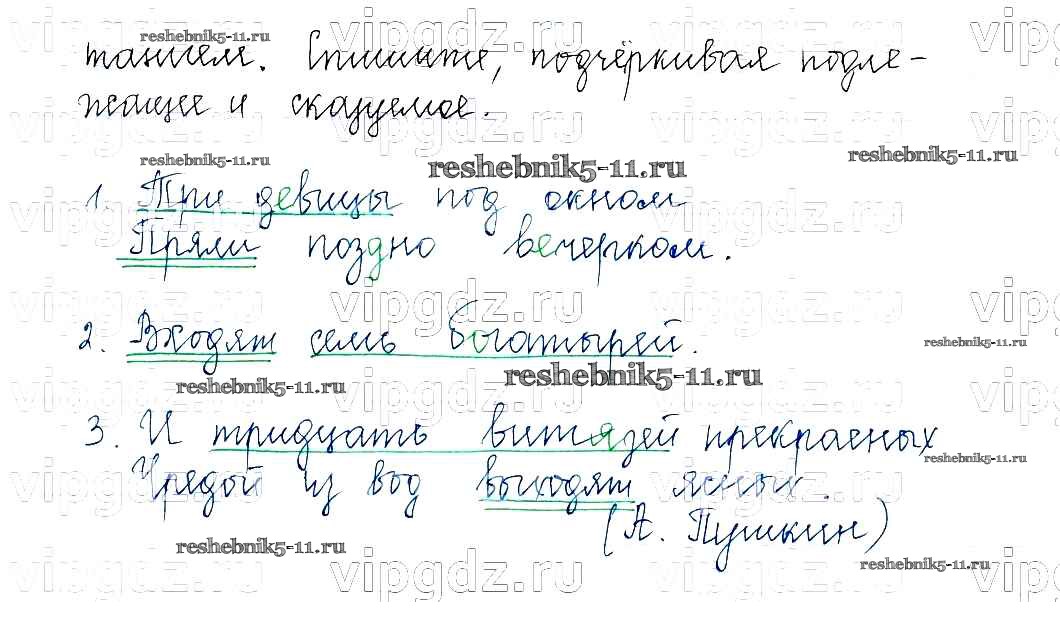 танием. Спишите, подчёркивая подле-
жащее и сказуемое.
1. Три девицы под окном
Пряли поздно вечерком.
2. Входят семь богатырей.
3. И тридцать витязей прекрасных
Чредой из вод выходят ясных.
(А. Пушкин)
reshebnik5-11.ru
vipgdz.ru